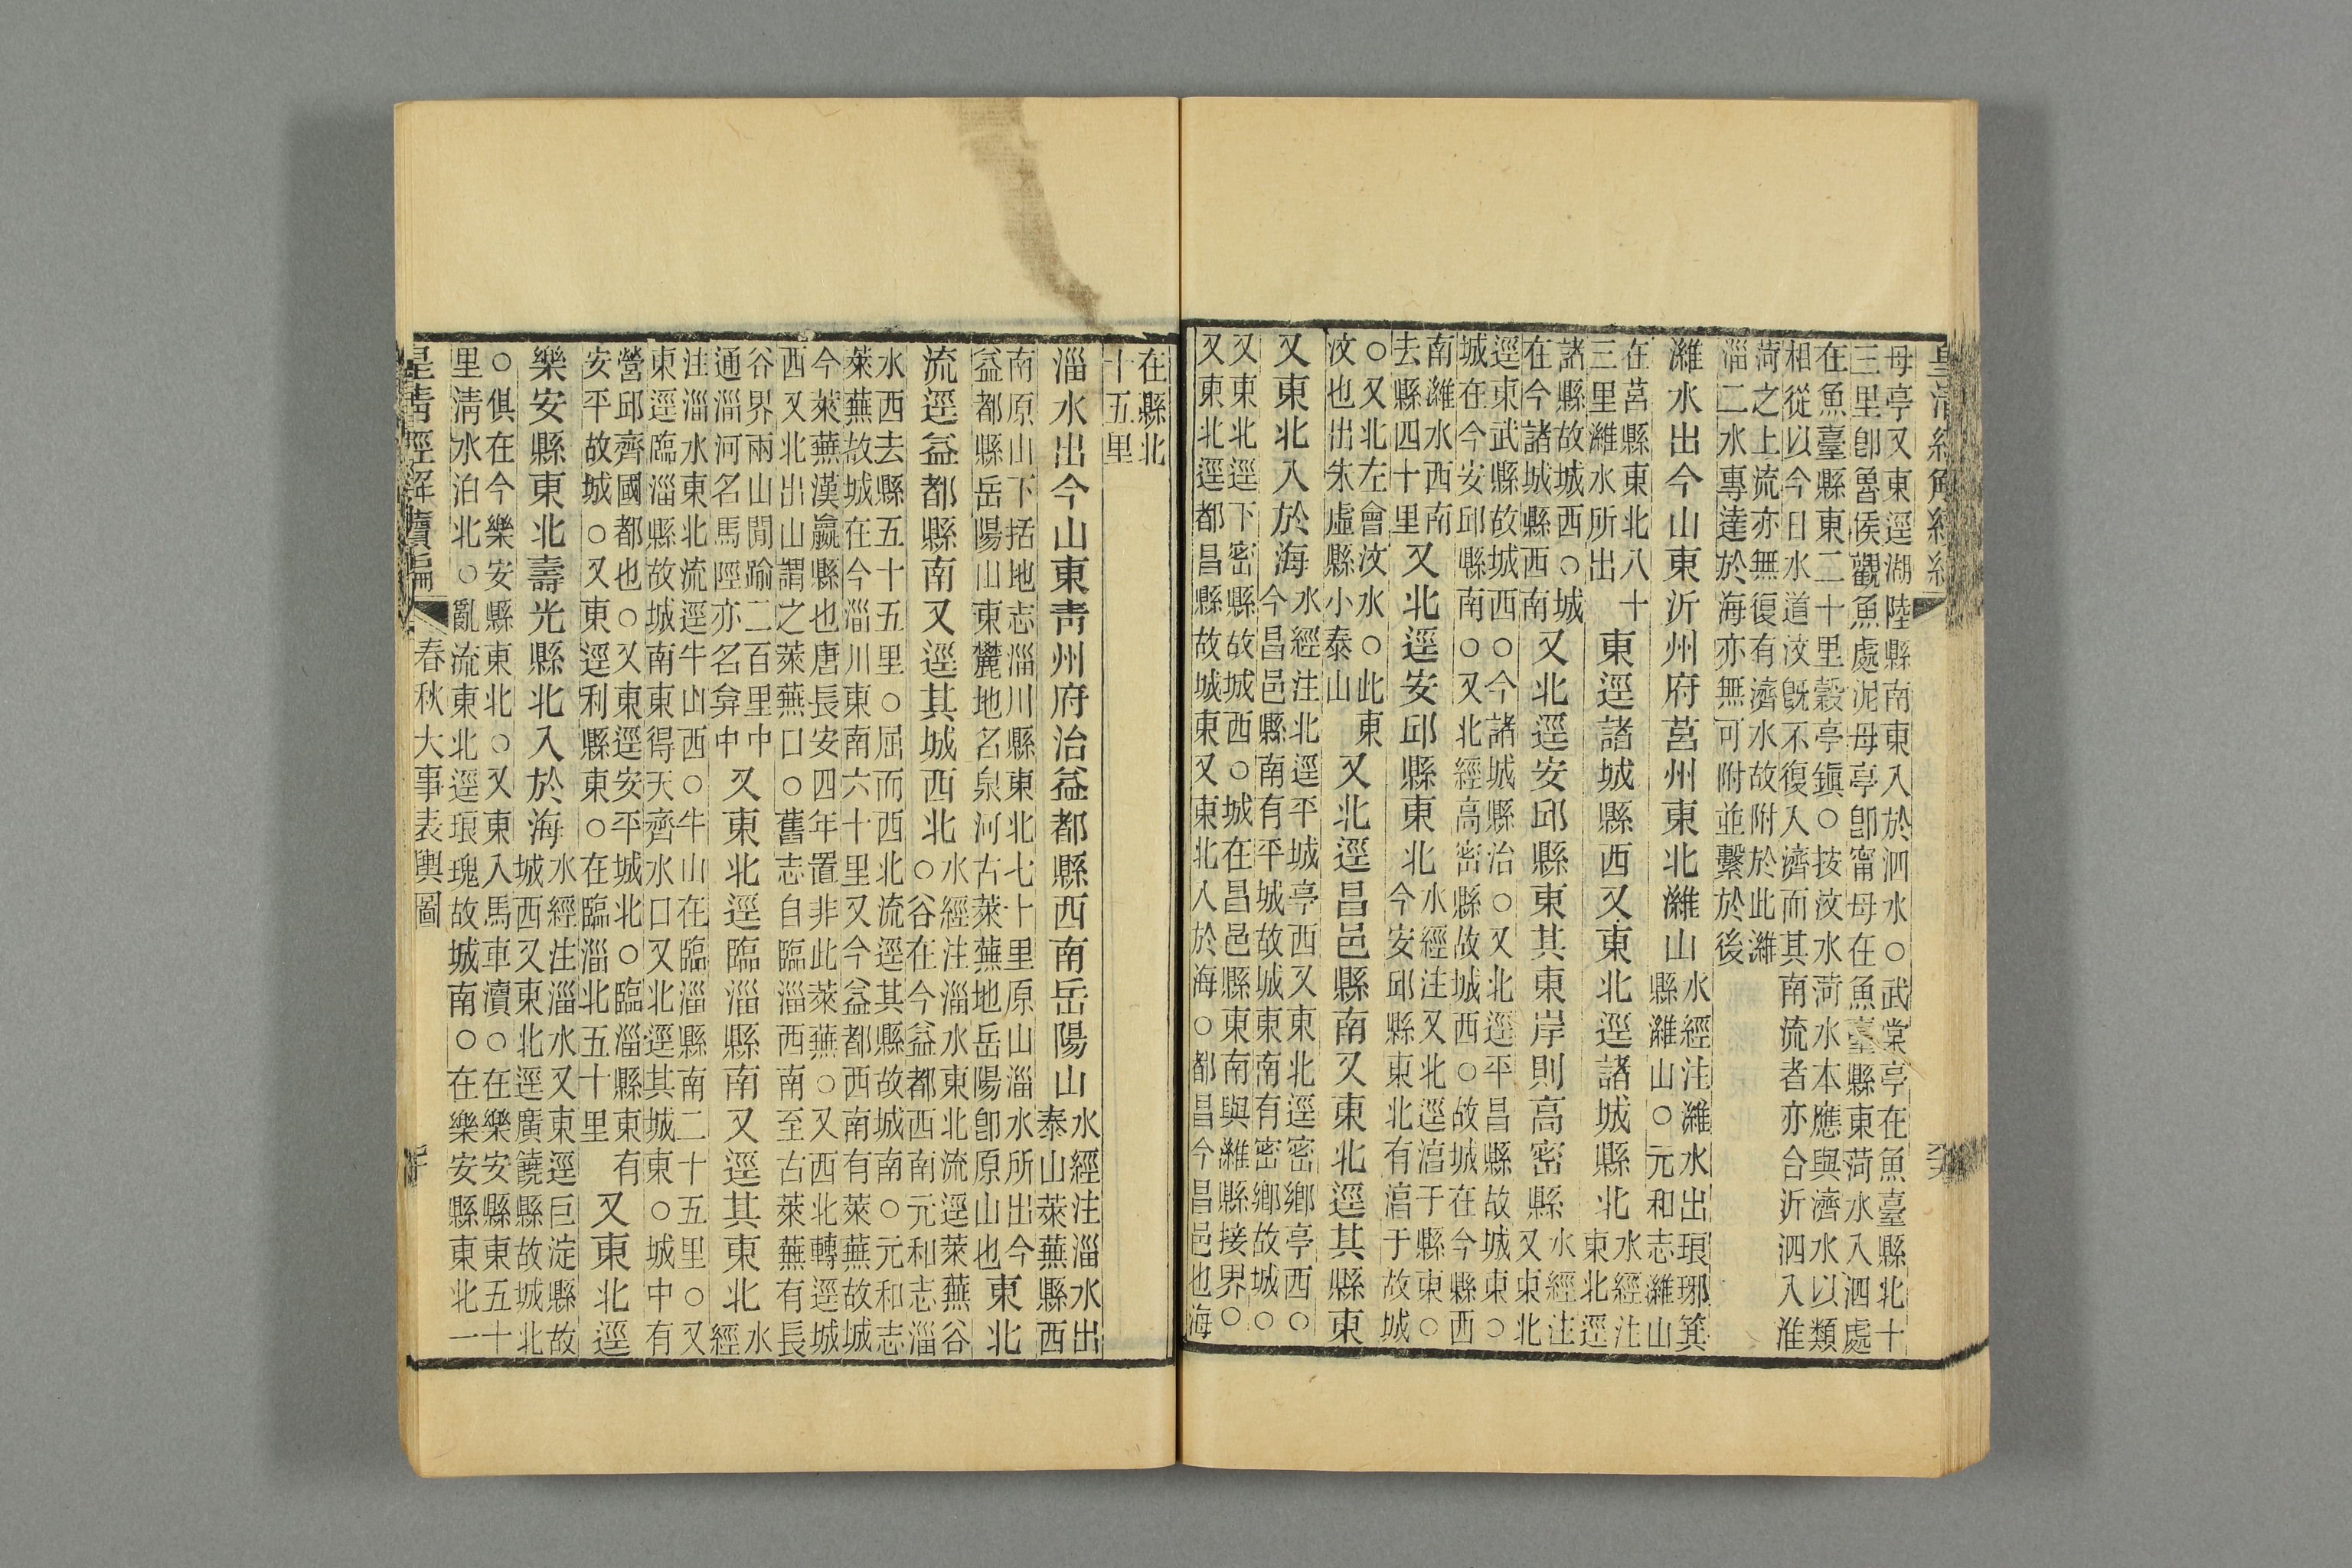 母亭又東逕湖陸縣南東入於泗水○武棠亭在魚臺縣北十
三里卽魯侯觀魚處泥母亭卽甯母在魚臺縣東菏水入泗處
在魚臺縣東二十里穀亭鎭○按汶水菏水本應與濟水以類
相從以今日水道汶旣不復入濟而其南流者亦合沂泗入淮
菏之上流亦無復有濟水故附於此濰
淄二水專達於海亦無可附並繫於後
濰水出今山東沂州府莒州東北濰山
水經注濰水出琅琊箕
縣濰山○元和志濰山
在莒縣東北八十
三里濰水所出
東逕諸城縣西又東北逕諸城縣北
水經注
東北逕
諸縣故城西○城
在今諸城縣西南
又北逕安邱縣東其東岸則高密縣
水經注
又東北
逕東武縣故城西○今諸城縣治○又北逕平昌縣故城東○
城在今安邱縣南○又北經高密縣故城西○故城在今縣西
南濰水西南
去縣四十里
又北逕安邱縣東北
水經注又北逕淯于縣東○
今安邱縣東北有淯于故城
○又北左會汶水○此東
汶也出朱虛縣小泰山
又北逕昌邑縣南又東北逕其縣東
又東北入於海
水經注北逕平城亭西又東北逕密鄉亭西○
今昌邑縣南有平城故城東南有密鄉故城○
又東北逕下密縣故城西○城在昌邑縣東南與濰縣接界○
又東北逕都昌縣故城東又東北入於海○都昌今昌邑也海
在縣北
十五里
淄水出今山東靑州府治益都縣西南岳陽山
水經注淄水出
泰山萊蕪縣西
南原山下括地志淄川縣東北七十里原山淄水所出今
益都縣岳陽山東麓地名泉河古萊蕪地岳陽卽原山也
東北
流逕益都縣南又逕其城西北
水經注淄水東北流逕萊蕪谷
○谷在今益都西南元和志淄
水西去縣五十五里○屈而西北流逕其縣故城南○元和志
萊蕪故城在今淄川東南六十里又今益都西南有萊蕪故城
今萊蕪漢嬴縣也唐長安四年置非此萊蕪○又西北轉逕城
西又北出山謂之萊蕪口○舊志自臨淄西南至古萊蕪有長
谷界兩山閒踰二百里中
通淄河名馬陘亦名弇中
又東北逕臨淄縣南又逕其東北
水
經
注淄水東北流逕牛山西○牛山在臨淄縣南二十五里○又
東逕臨淄縣故城南東得天齊水口又北逕其城東○城中有
營邱齊國都也○又東逕安平城北○臨淄縣東有
安平故城○又東逕利縣東○在臨淄北五十里
又東北逕
樂安縣東北壽光縣北入於海
水經注淄水又東逕巨淀縣故
城西又東北逕廣饒縣故城北
○俱在今樂安縣東北○又東入馬車瀆○在樂安縣東五十
里淸水泊北○亂流東北逕琅瑰故城南○在樂安縣東北一
皇清經解續編
春秋大事表輿圖